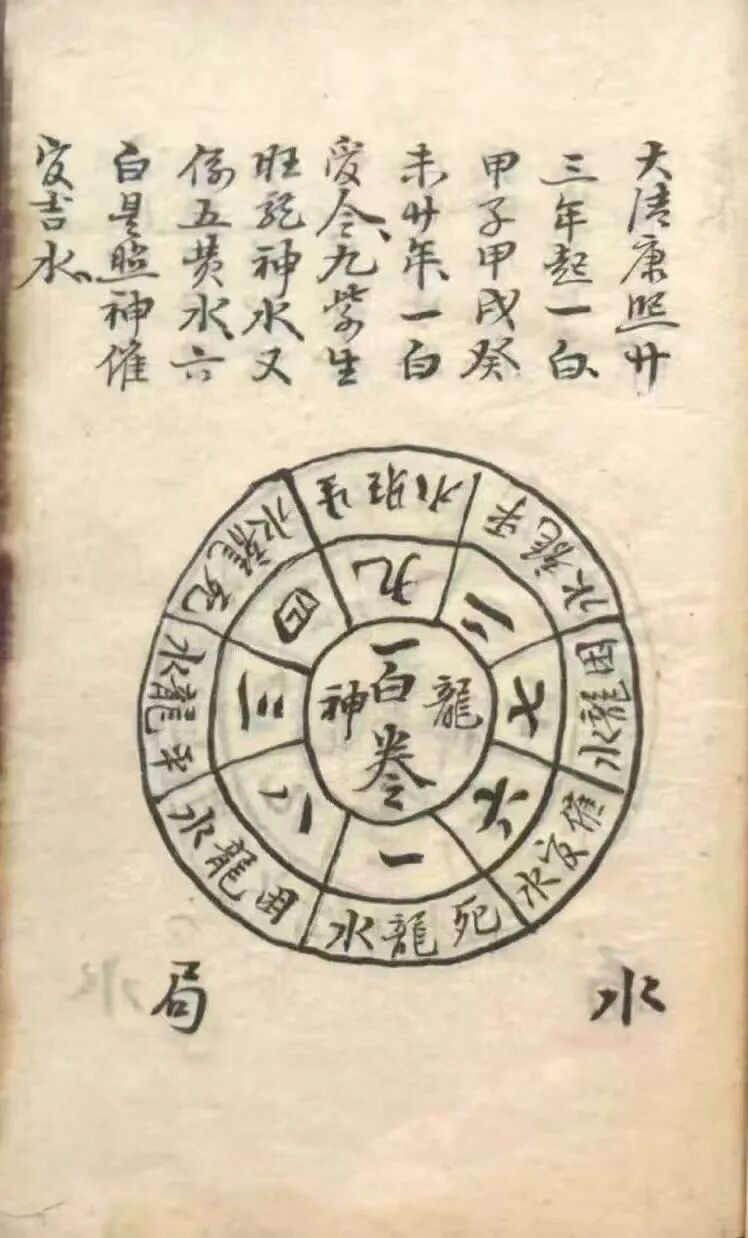 大清康熙廿
三年起一白
甲子甲戌癸
未廿年一白
令九紫生
旺龍神水又
係五黄水六
白是照神催
官吉水
生旺水
平龍水
困龍水
催官水
死龍水
困龍水
平龍水
死龍水
九
二
七
六
一
八
三
四
龍神
一白令
水局